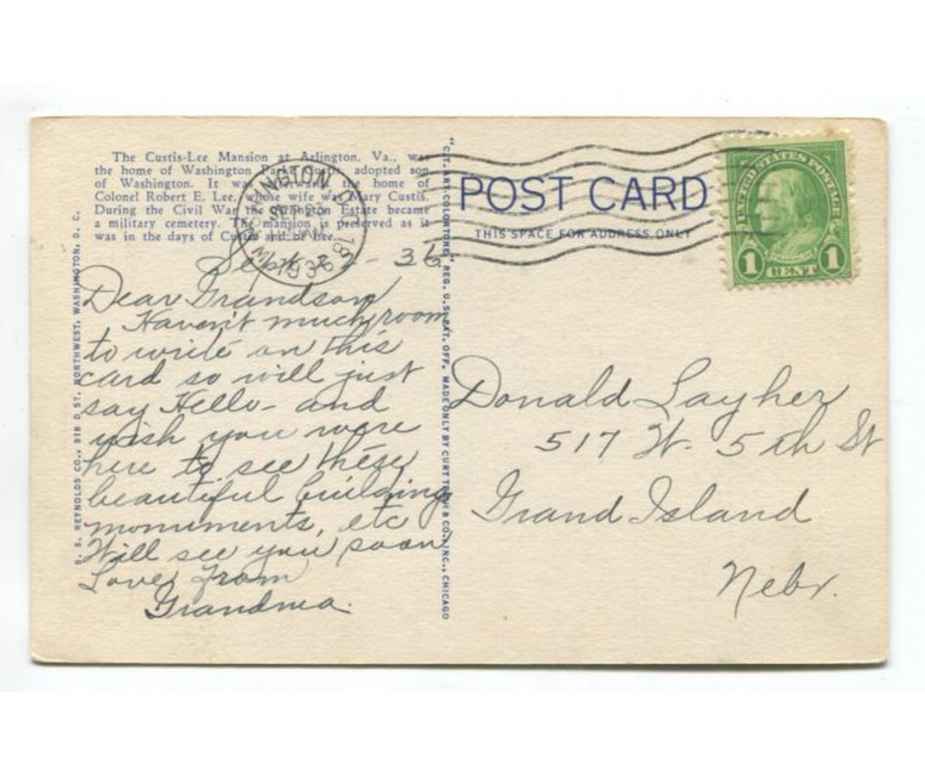 The Custis-Lee Mansion at Arlington, Va., was
the home of Washington Parke Custis, adopted son
of Washington. It was afterwards the home of
Colonel Robert E. Lee, whose wife was Mary Custis.
During the Civil War the Arlington Estate became
a military cemetery. The mansion is preserved as it
was in the days of Custis and of Lee.
Sept - 36
Dear Grandson
Haven't much room
to write on this
card so will just
say Hello - and
wish you were
here to see these
beautiful buildings
monuments, etc
Will see you soon
Love from
Grandma.
B. S. REYNOLDS CO., 818 D ST. NORTHWEST, WASHINGTON, D. C.
"C.T. ART-COLORTONE" REG. U.S. PAT. OFF. MADE ONLY BY CURT TEICH & CO., INC., CHICAGO
WASHINGTON, D.C.
1936
POST CARD
THIS SPACE FOR ADDRESS ONLY
UNITED STATES POSTAGE
FRANKLIN
1 CENT 1
Donald Layher
517 W. 5th St
Grand Island
Nebr.